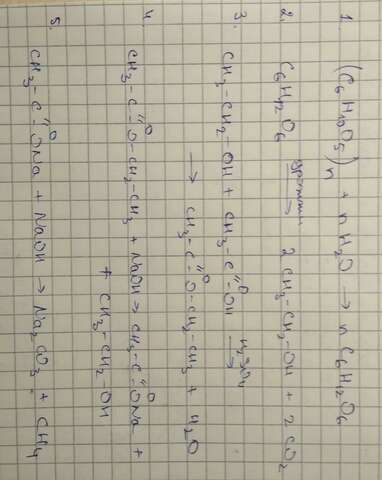 1. (C6H10O5)n + n H2O → n C6H12O6
2. C6H12O6 → 2 CH3-CH2-OH + 2 CO2
3. CH3-CH2-OH + CH3-C=O-OH H2SO4 →
→ CH3-C=O-O-CH2-CH3 + H2O
4. CH3-C=O-O-CH2-CH3 + NaOH → CH3-C=O-ONa +
+ CH3-CH2-OH
5. CH3-C=O-ONa + NaOH → Na2CO3 + CH4